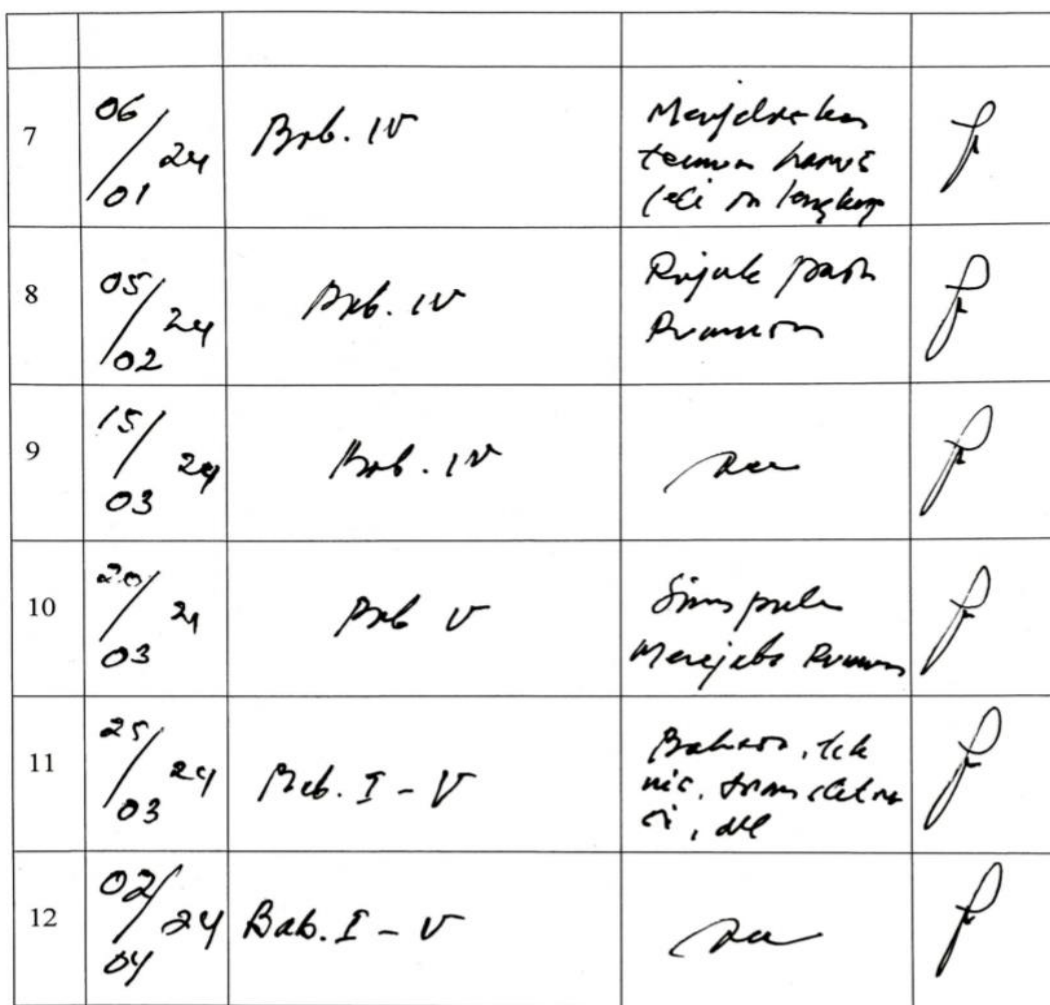 7
06/01 24
Bab. IV
Menjelaskan
temuan harus
di lengkap
8
05/02 24
Bab. IV
Rujuk pada
9
15/03 24
Bab. IV
10
20/03 24
Bab V
Simpulan
11
25/03 24
Bab. I - V
Bahasa, tek
nis, transletera
si, dll
12
02/04 24
Bab. I - V